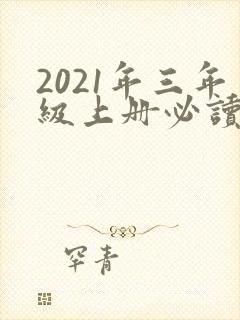 2021年三年
级上册必讀
罕青